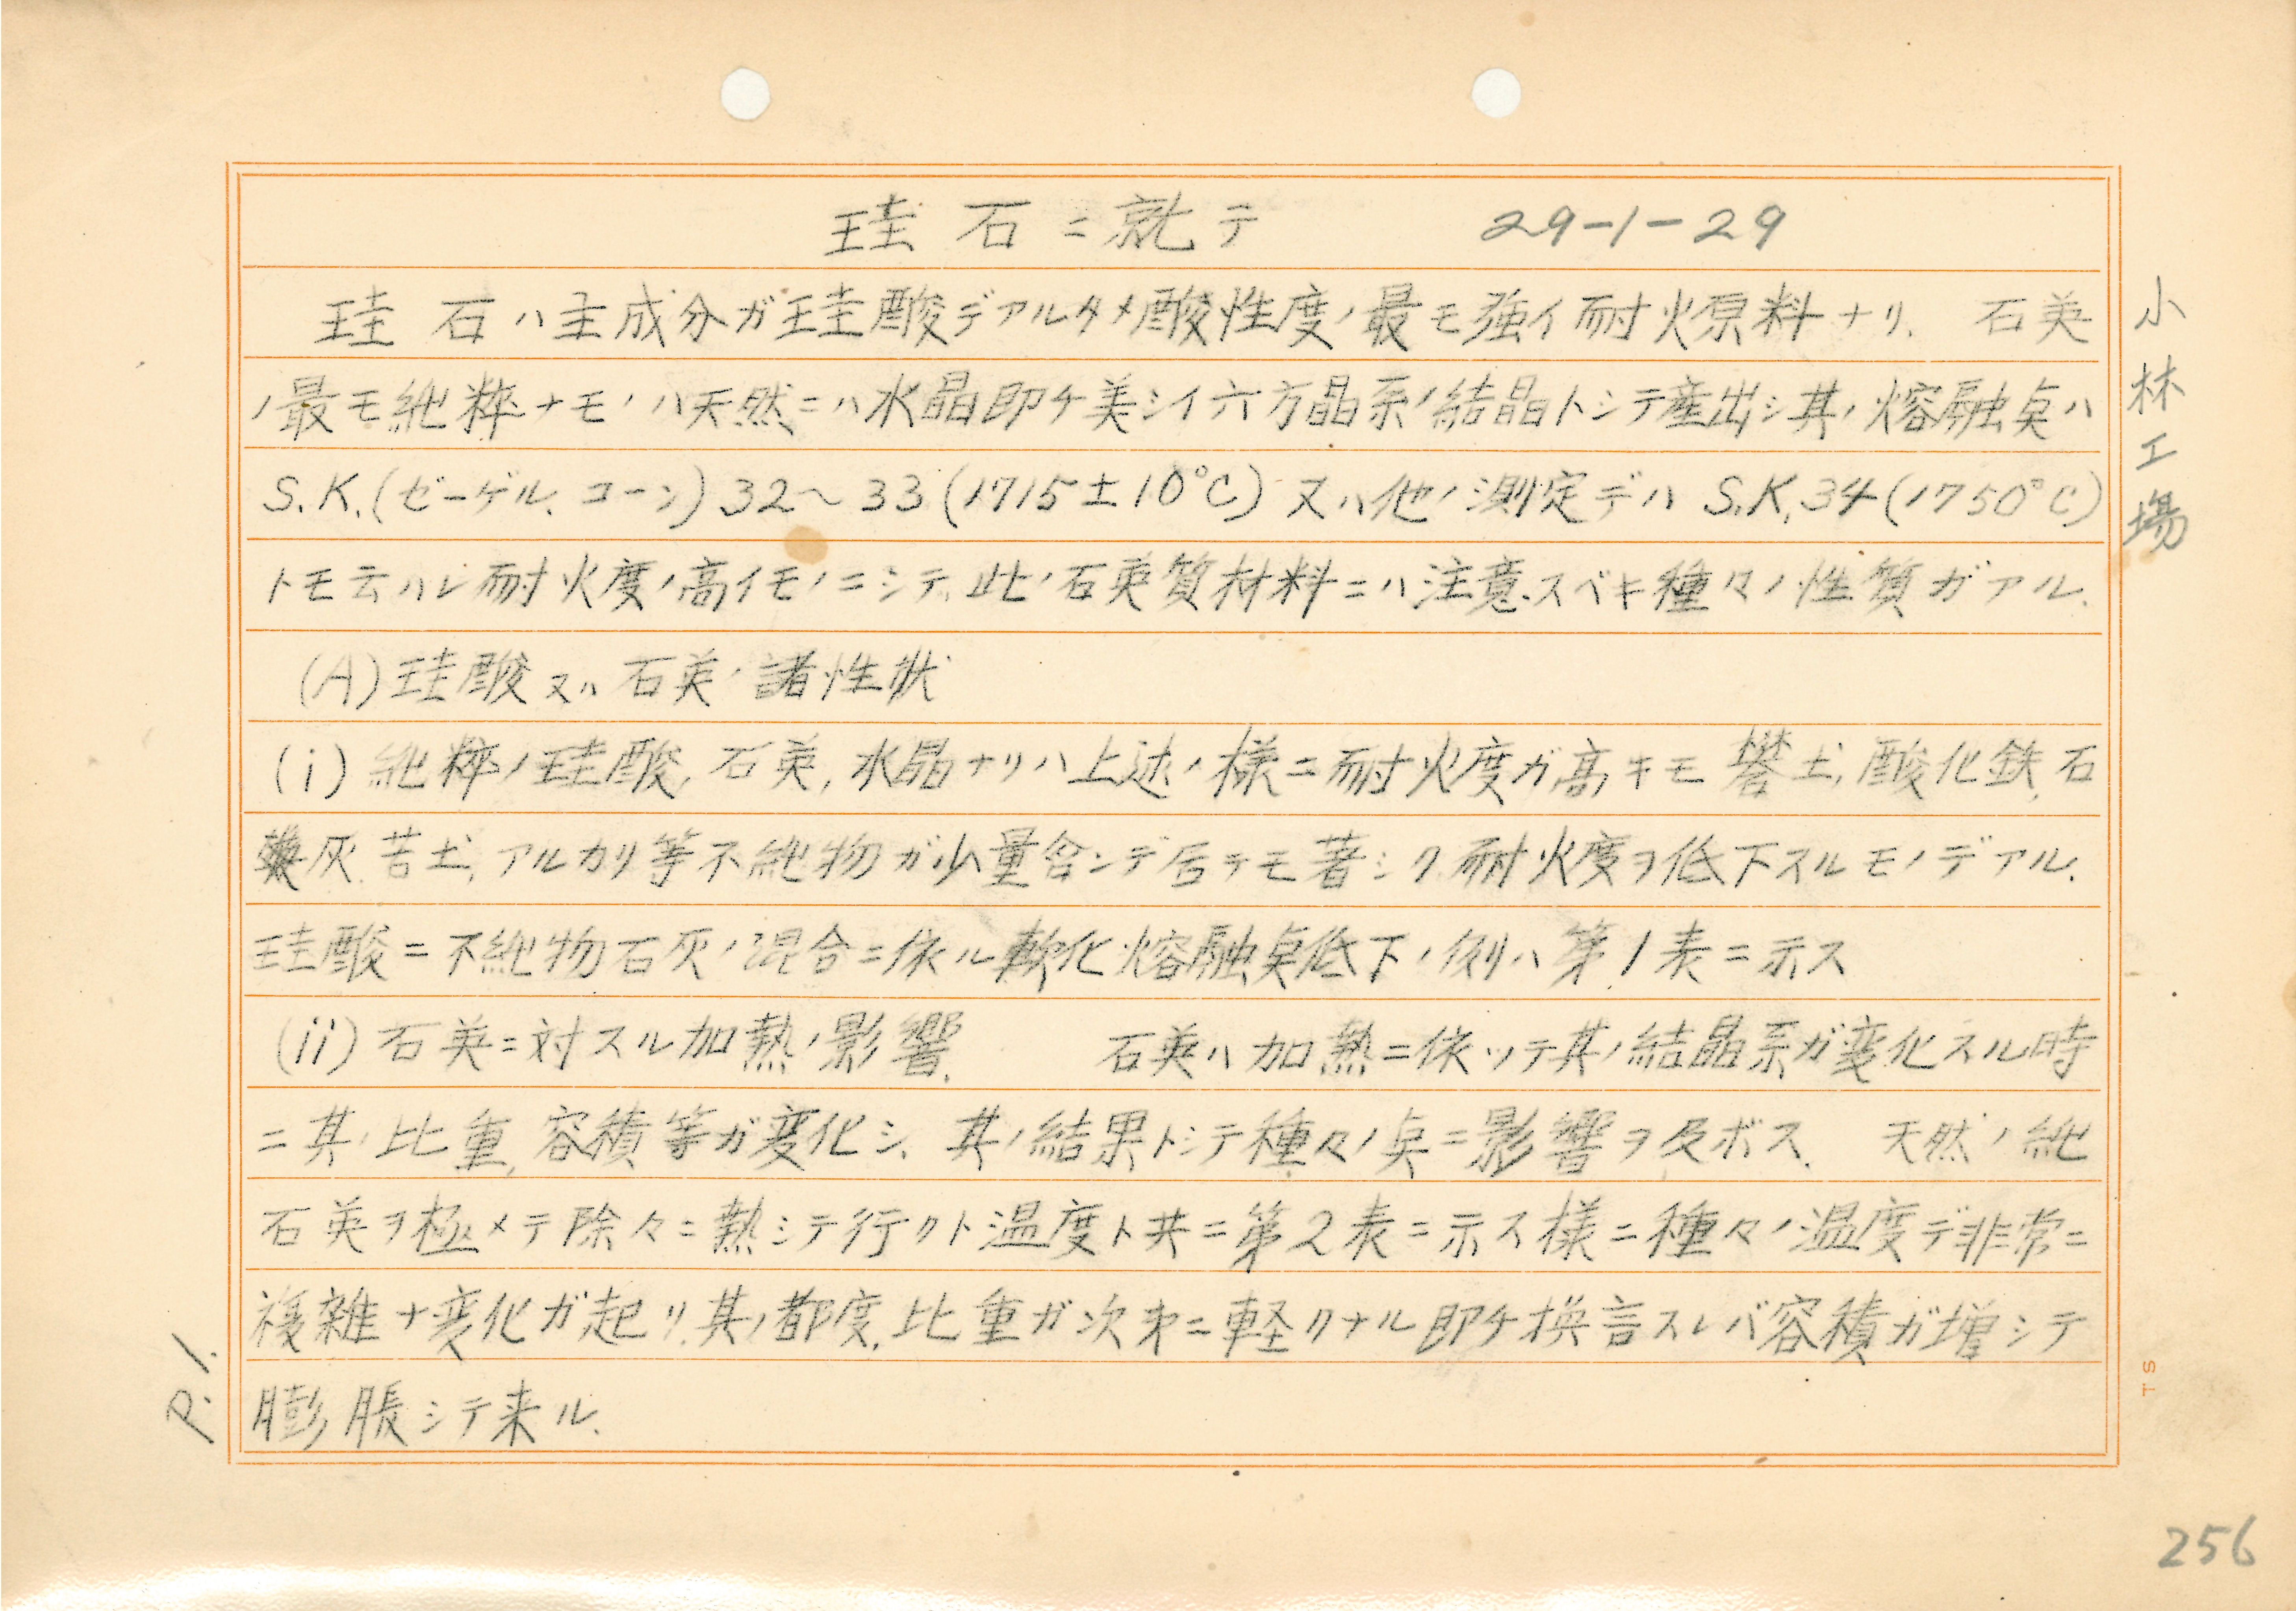 珪石ニ就テ 29-1-29
珪石ハ主成分ガ珪酸デアルタメ酸性度ノ最モ強イ耐火原料ナリ、 石英
ノ最モ純粋ナモノハ天然ニハ水晶即チ美シイ六方晶系ノ結晶トシテ産出シ其ノ熔融点ハ
S.K.(ゼーゲル、コーン) 32～33 (1715±10℃) 又ハ他ノ測定デハ S.K.34(1750℃)
トモ云ハレ耐火度ノ高イモノニシテ、此ノ石英質材料ニハ注意スベキ種々ノ性質ガアル.
(A) 珪酸又ハ石英ノ諸性状
(i) 純粋ノ珪酸, 石英, 水晶ナリハ上述ノ様ニ耐火度ガ高キモ礬土, 酸化鉄, 石
灰, 苦土, アルカリ等不純物ガ少量含ンデ居テモ著シク耐火度ヲ低下スルモノデアル.
珪酸ニ不純物石灰ノ混合ニ依ル軟化熔融点低下ノ例ハ第1表ニ示ス
(ii) 石英ニ対スル加熱ノ影響. 石英ハ加熱ニ依ッテ其ノ結晶系ガ変化スル時
ニ其ノ比重, 容積等ガ変化シ、其ノ結果トシテ種々ノ点ニ影響ヲ及ボス. 天然ノ純
石英ヲ極メテ除々ニ熱シテ行クト温度ト共ニ第2表ニ示ス様ニ種々ノ温度デ非常ニ
複雑ナ変化ガ起リ、其ノ都度、比重ガ次第ニ軽クナル即チ換言スレバ容積ガ増シテ
膨脹シテ来ル.
小林工場
P.1.
TS
256